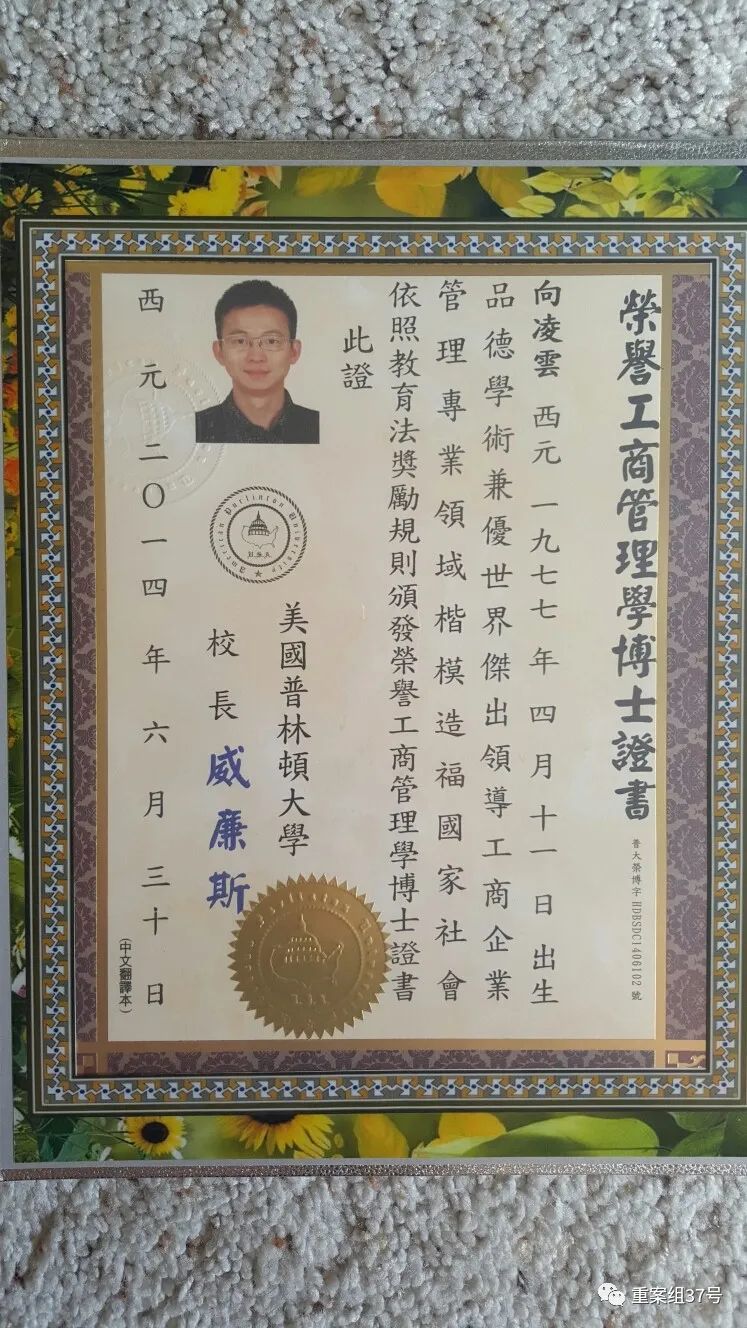 榮譽工商管理學博士證書
普大榮博字 HDBSDC1406102 號
向凌雲 西元 一九七七 年 四 月 十一 日 出生
品德學術兼優世界傑出領導工商企業
管理專業領域楷模造福國家社會
依照教育法獎勵規則頒發榮譽工商管理學博士證書
此證
American Purlinton University
U.S.A.
美國普林頓大學
校長 威廉斯
西元二〇一四年六月三十日
(中文翻譯本)
重案组37号